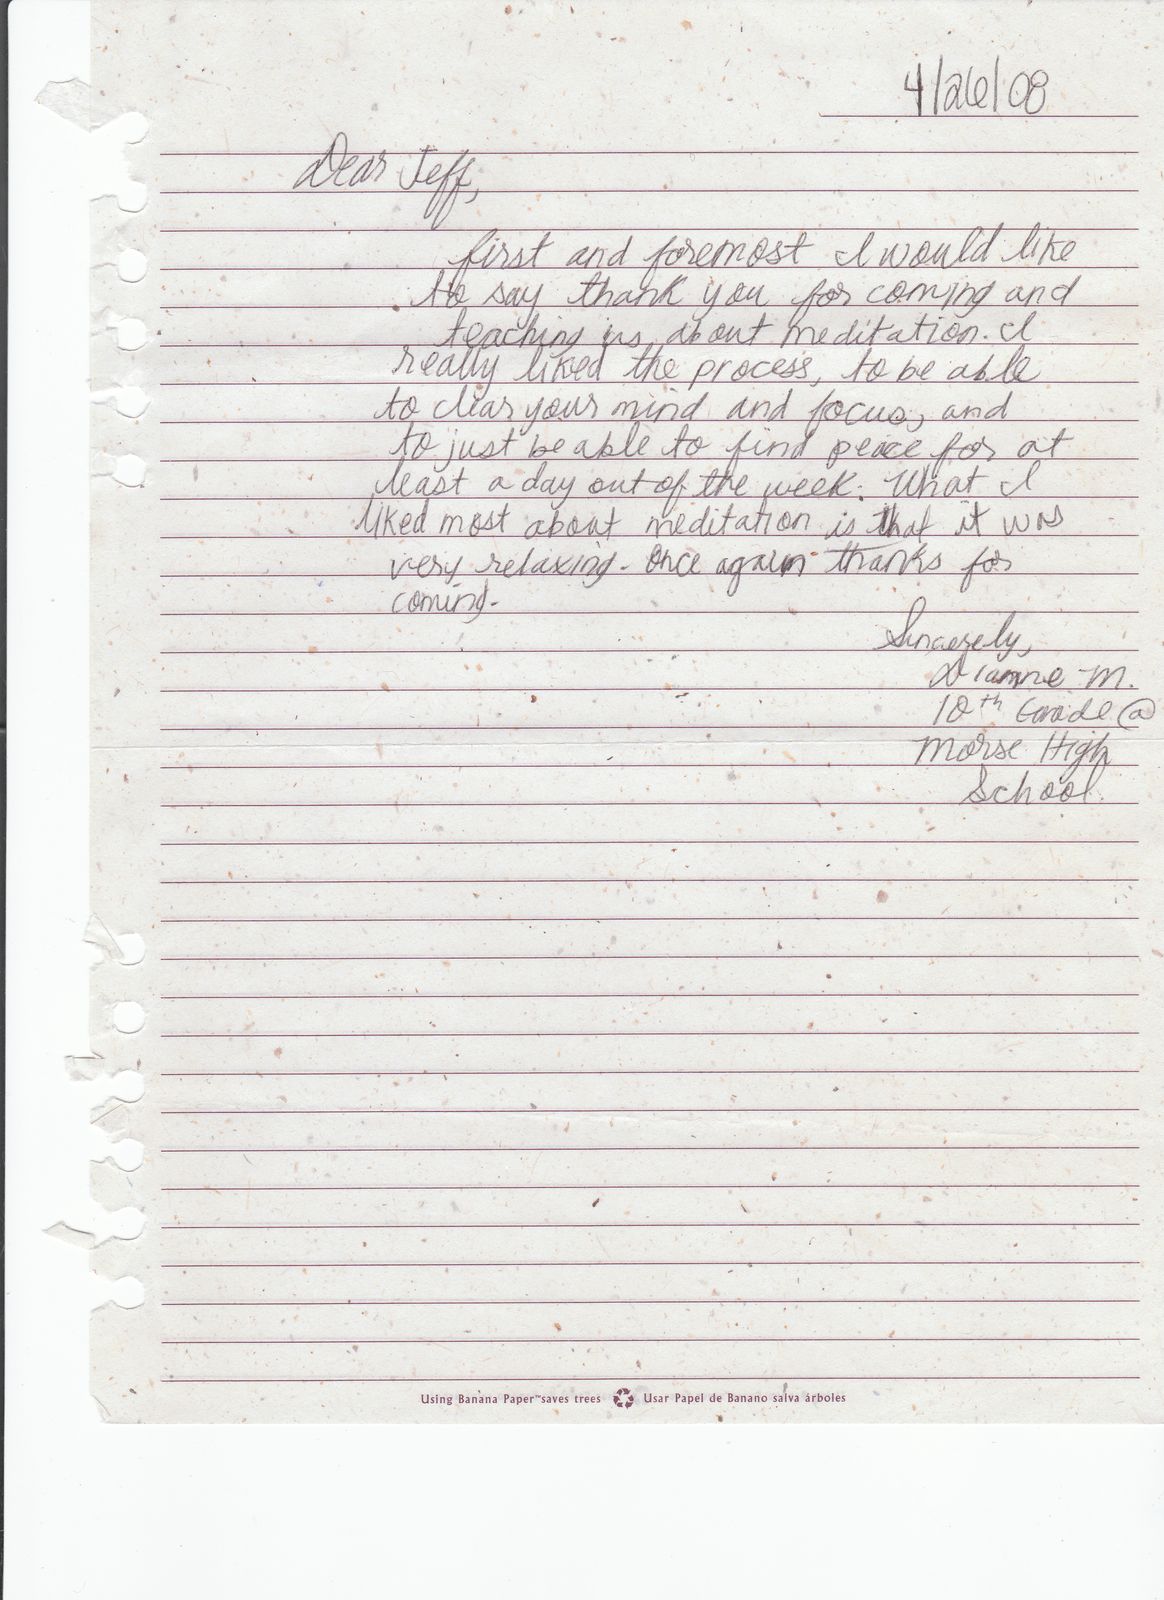 4/26/08
Dear Jeff,
first and foremost I would like
to say thank you for coming and
teaching us about meditation. I
really liked the process, to be able
to clear your mind and focus, and
to just be able to find peace for at
least a day out of the week. What I
liked most about meditation is that it was
very relaxing. Once again thanks for
coming.
Sincerely,
Dianne M.
10th Grade @
Morse High
School.
Using Banana Paper™ saves trees Usar Papel de Banano salva árboles